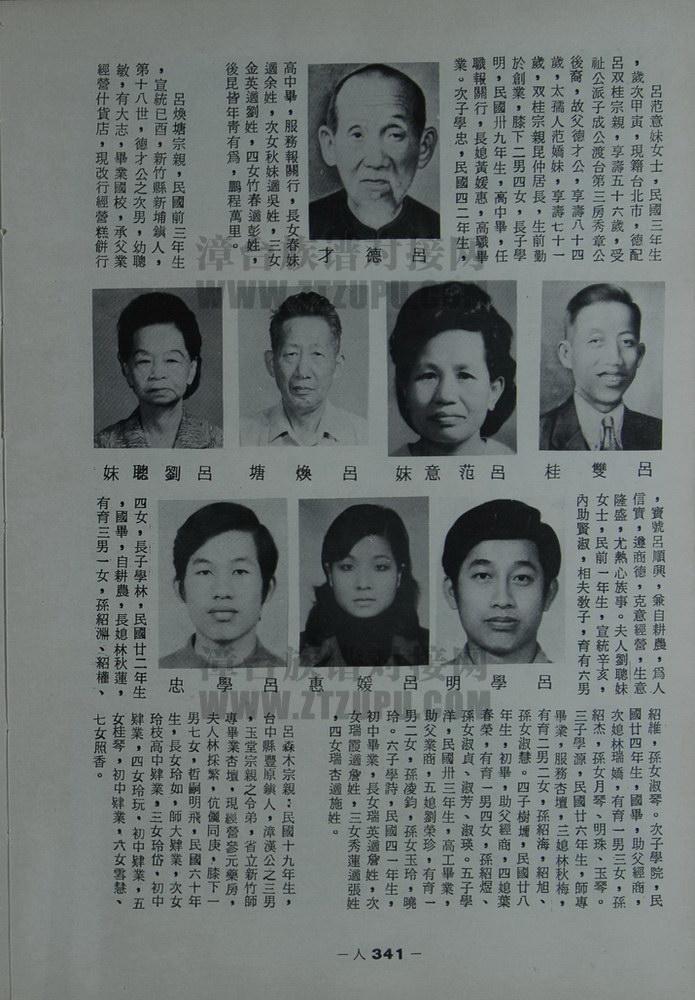 呂范意妹女士，民國三年生
，歲次甲寅，現籍台北市，德配
呂双桂宗親，享壽五十六歲，受
祉公派子成公渡台第三房秀章公
後裔，故父德才公，享壽八十四
歲，太孺人范嬌妹，享壽七十一
歲，双桂宗親昆仲居長，生前勤
於創業，膝下二男四女，長子學
明，民國卅九年生，高中畢，任
職報關行，長媳黃媛惠，高職畢
業。次子學忠，民國四二年生，
高中畢，服務報關行，長女春妹
適余姓，次女秋妹適吳姓，三女
金英適劉姓，四女竹春適彭姓，
後昆皆年青有為，鵬程萬里。
呂煥塘宗親，民國前三年生
，宣統已酉，新竹縣新埔鎮人，
第十八世，德才公之次男，幼聰
敏，有大志，畢業國校，承父業
經營什貨店，現改行經營糕餅行
才德呂
漳台族谱对接网
WWW.ZTZUPU.COM
桂雙呂
妹意范呂
塘煥呂
妹聰劉呂
，寶號呂順興，兼自耕農，為人
信實，遵商德，克意經營，生意
隆盛，尤熱心族事。夫人劉聰妹
女士，民前一年生，宣統辛亥，
內助賢淑，相夫教子，育有六男
四女，長子學林，民國廿二年生
，國畢，自耕農，長媳林秋蓮，
有育三男一女，孫紹淵、紹權、
明學呂
惠媛呂
忠學呂
漳台族谱对接网
WWW.ZTZUPU.COM
紹維，孫女淑琴。次子學院，民
國廿四年生，國畢，助父經商，
次媳林瑞嬌，有育一男三女，孫
紹杰，孫女月琴、明珠、玉琴。
三子學源，民國廿六年生，師專
畢業，服務杏壇，三媳林秋梅，
有育二男二女，孫紹海，紹旭、
孫女淑慧。四子樹壎，民國廿八
年生，初畢，助父經商，四媳葉
春榮，有育一男四女，孫紹焜、
孫女淑貞、淑芳、淑瑛。五子學
洋，民國卅三年生，高工畢業，
助父業商，五媳劉榮珍，有育一
男二女，孫凌鈞，孫女玉玲，曉
玲。六子學詩，民國四一年生，
初中畢業，長女瑞英適詹姓，次
女瑞霞適詹姓，三女秀蓮適張姓
，四女瑞杏適施姓。
呂森木宗親；民國十九年生，
台中縣豐原鎮人，漳漢公之三男
，玉堂宗親之令弟，省立新竹師
專畢業杏壇，現經營參元藥房，
夫人林採繁，伉儷同庚，膝下一
男七女，哲嗣明飛，民國六十年
生，長女玲如，師大肄業，次女
玲枝高中肄業，三女玲岱，初中
肄業，四女玲玩，初中肄業，五
女桂琴，初中肄業，六女雪慧、
七女照香。
－人341－